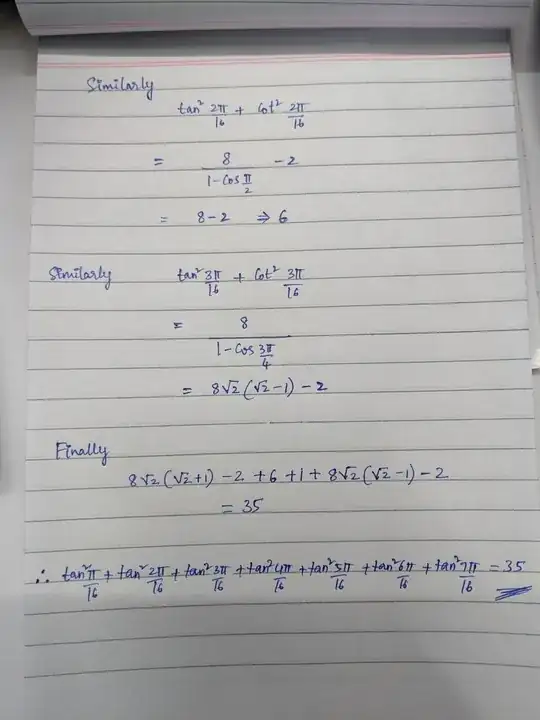 Similarly
tan² 2π/16 + Cot² 2π/16
= 8/(1-Cos π/2) -2
= 8-2 ⇒ 6
Similarly tan² 3π/16 + Cot² 3π/16
= 8/(1-Cos 3π/4)
= 8√2(√2-1) -2
Finally
8√2(√2+1) -2 +6 +1+ 8√2(√2-1) -2
= 35
∴ tan²π/16 + tan² 2π/16 + tan² 3π/16 + tan² 4π/16 + tan² 5π/16 + tan² 6π/16 + tan² 7π/16 = 35